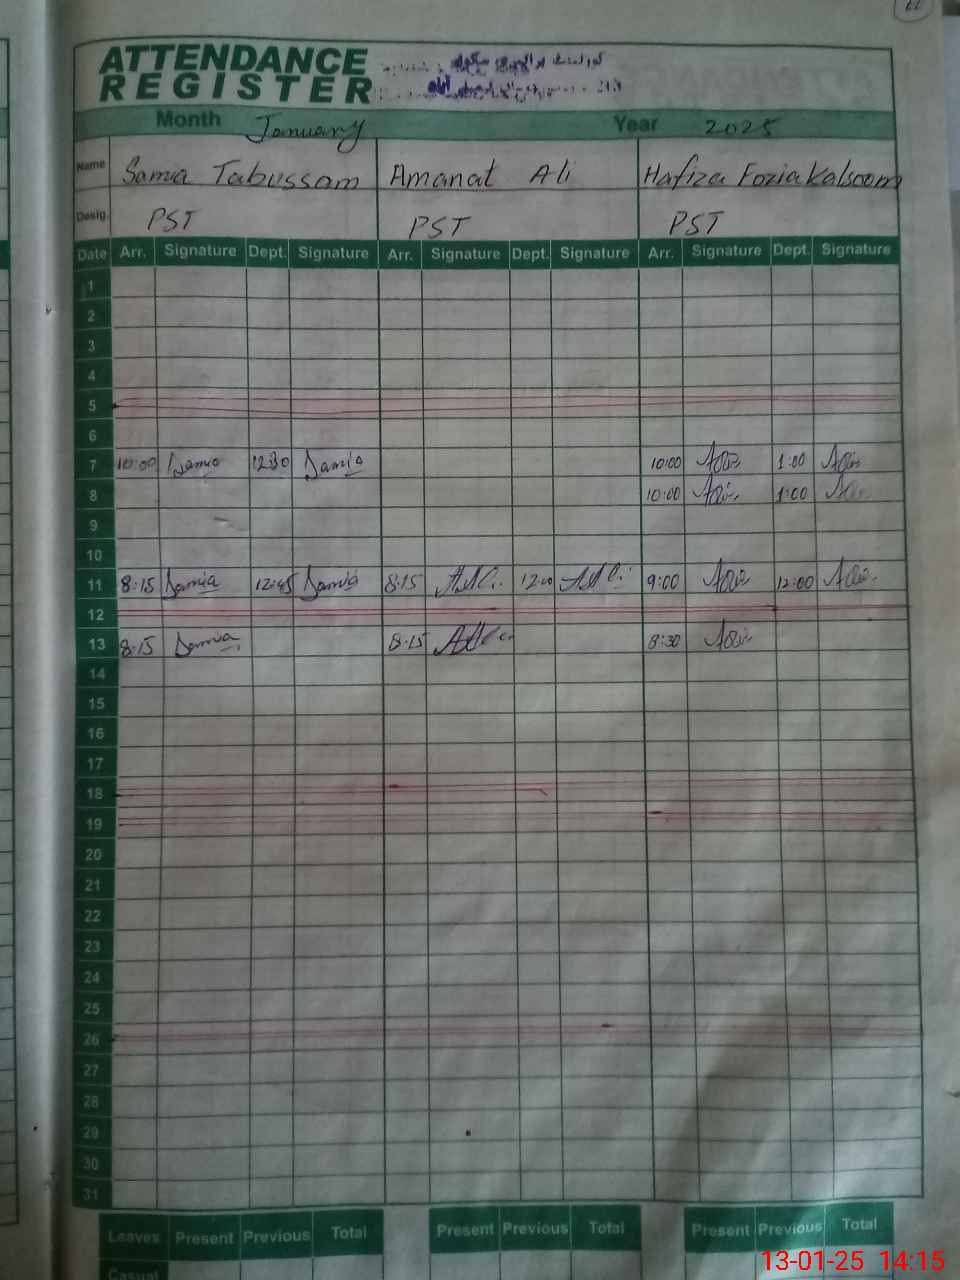 22
ATTENDANCE
REGISTER
گورنمنٹ پرائمری سکول
Month January Year 2025
Name Samia Tabussam Amanat Ali Hafiza Fozia Kalsoom
Desig. PST PST PST
Date Arr. Signature Dept. Signature Arr. Signature Dept. Signature Arr. Signature Dept. Signature
1
2
3
4
5
6
7 10:00 Samia 12:30 Samia 10:00 1:00
8 10:00 1:00
9
10
11 8:15 Samia 12:45 Samia 8:15 12:00 9:00 12:00
12
13 8:15 Samia 8:15 8:30
14
15
16
17
18
19
20
21
22
23
24
25
26
27
28
29
30
31
Leaves Present Previous Total Present Previous Total Present Previous Total
Casual
13-01-25 14:15